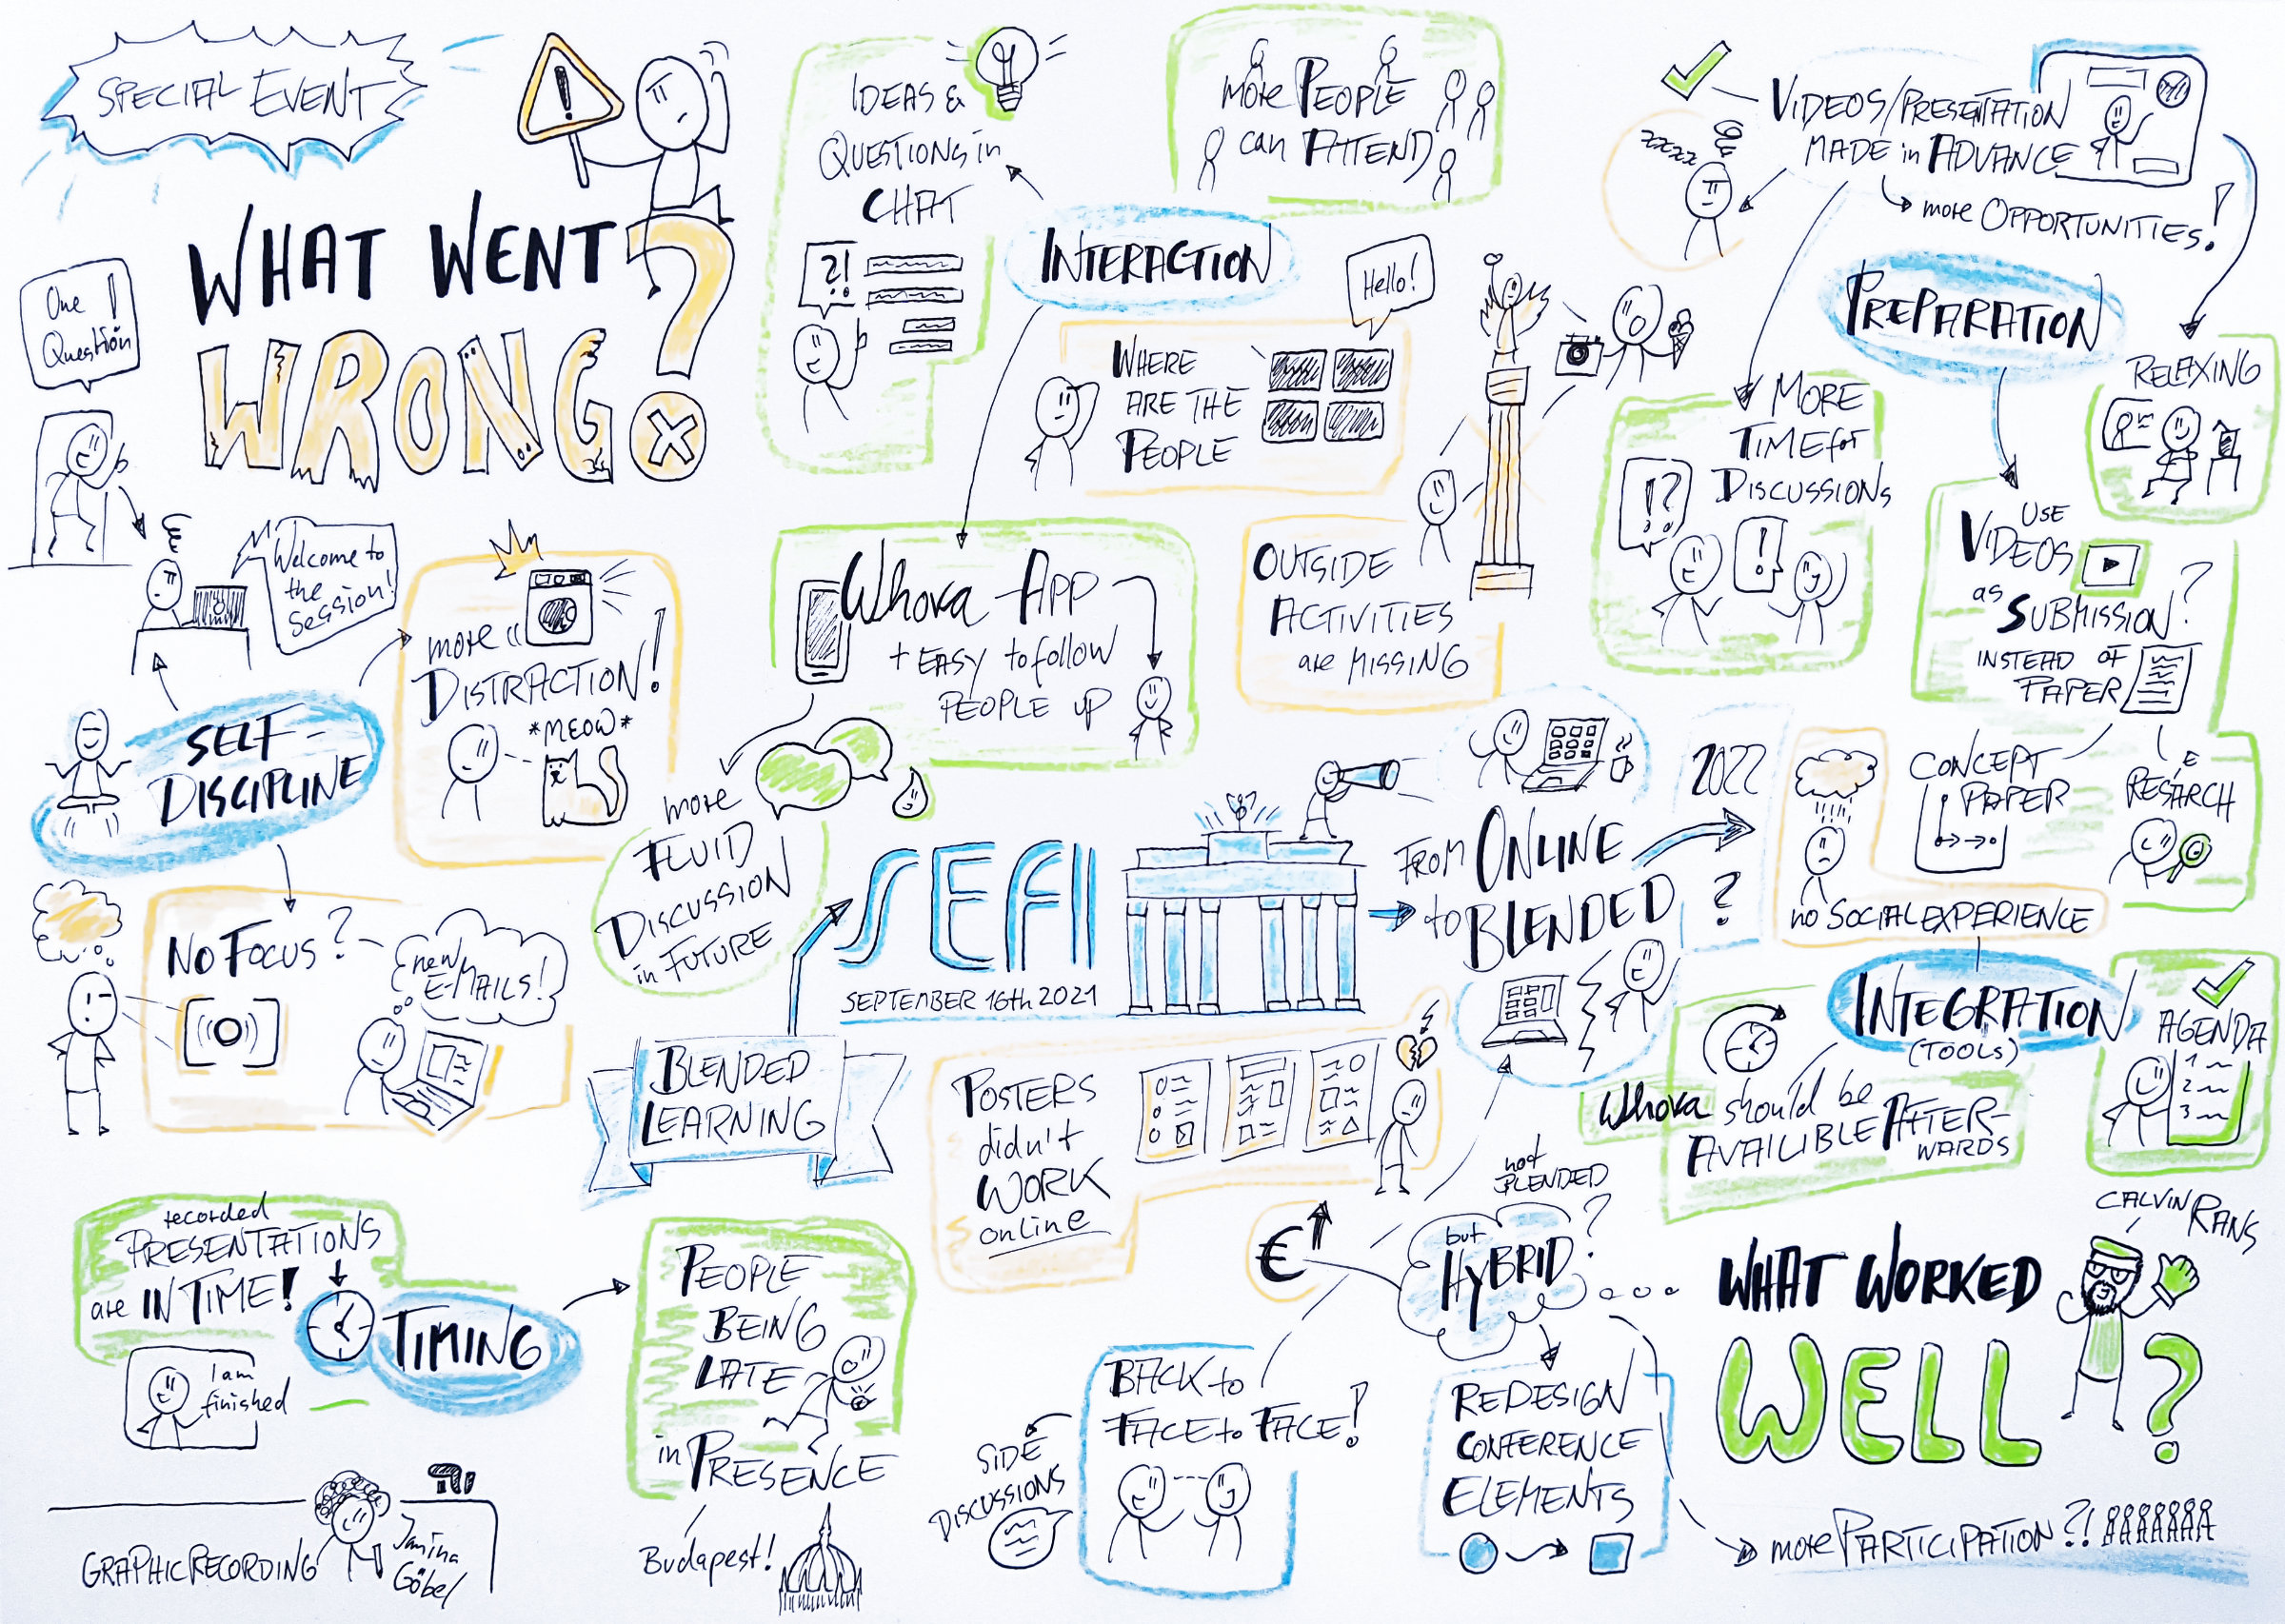 SPECIAL EVENT
WHAT WENT
WRONG?
One
Question!
Welcome to
the
Session!
SELF-
DISCIPLINE
more
DISTRACTION!
*MEOW*
NO FOCUS?
new
E-MAILS!
IDEAS &
QUESTIONS in
CHAT
?!
INTERACTION
more PEOPLE
can ATTEND
Hello!
WHERE
ARE THE
PEOPLE
OUTSIDE
ACTIVITIES
are MISSING
Whova-APP
+ EASY to follow
PEOPLE UP
more
FLUID
DISCUSSION
in FUTURE
VIDEOS/PRESENTATION
MADE in ADVANCE
zzzzz
more OPPORTUNITIES!
PREPARATION
RELAXING
MORE
TIME for
DISCUSSIONS
!?
!
USE
VIDEOS
as
SUBMISSION?
INSTEAD OF
PAPER
CONCEPT
PAPER
RESEARCH
no SOCIAL EXPERIENCE
SEFI
SEPTEMBER 16th 2021
FROM ONLINE
to BLENDED
2022
?
BLENDED
LEARNING
POSTERS
didn't
WORK
online
INTEGRATION
(TOOLS)
Whova should be
AVAILIBLE AFTER-
WARDS
AGENDA
1
2
3
recorded
PRESENTATIONS
are IN TIME!
TIMING
I am
finished
PEOPLE
BEING
LATE
in PRESENCE
Budapest!
€
not
BLENDED
but
HYBRID?
BACK to
FACE to FACE!
SIDE
DISCUSSIONS
REDESIGN
CONFERENCE
ELEMENTS
more PARTICIPATION?!
CALVIN RANS
WHAT WORKED
WELL?
GRAPHIC RECORDING
Janina
Göbel